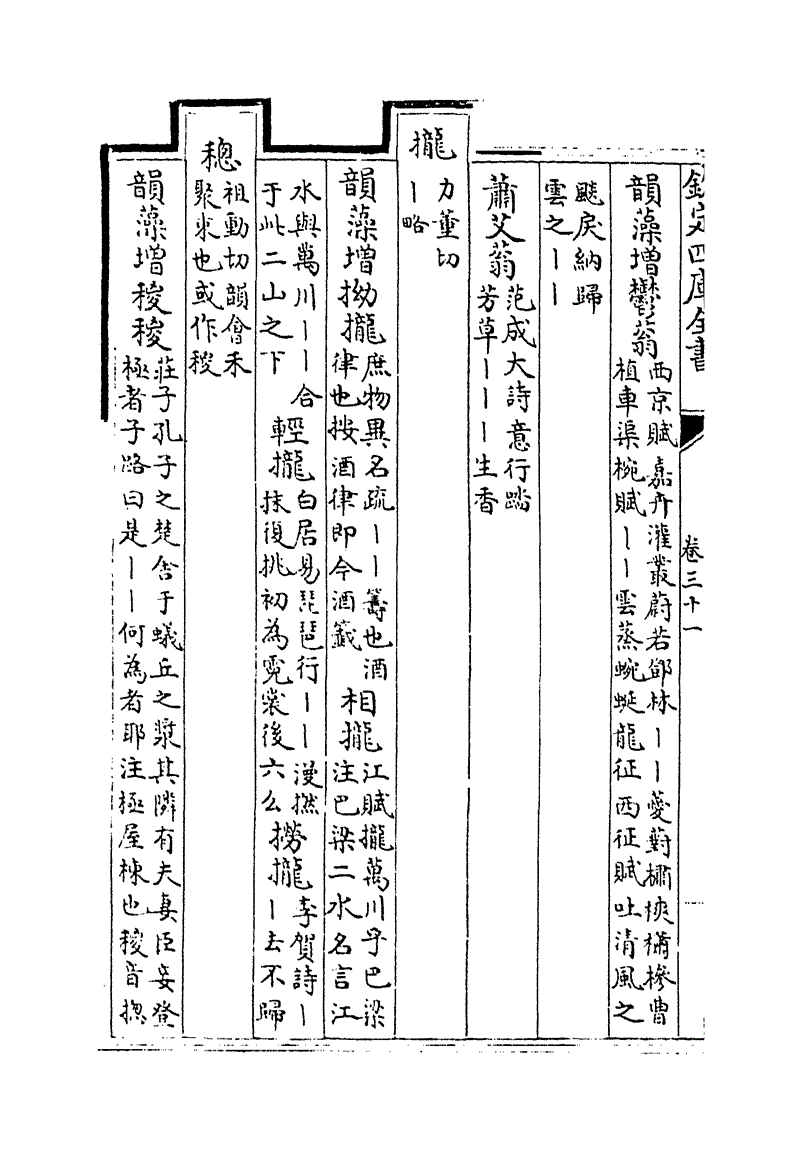 欽定四庫全書
卷三十一
韻藻増鬱蓊西京賦嘉卉灌叢蔚若鄧林丨丨薆薱橚爽櫹槮曹
植車渠椀賦丨丨雲蒸蜿蜒龍征西征賦吐清風之
飂戾納歸
雲之丨丨
蕭艾蓊范成大詩意行踏
芳草丨丨丨生香
攏力董切
丨略
韻藻増拗攏庶物異名疏丨丨籌也酒
律也按酒律即今酒籤相攏江賦攏萬川乎巴梁
注巴梁二水名言江
水與萬川丨丨合
于此二山之下輕攏白居易琵琶行丨丨漫撚
抹復挑初為霓裳後六么撈攏李賀詩丨
丨去不歸
稯祖動切韻會禾
聚束也或作稯
韻藻増稯稯莊子孔子之楚舍于蟻丘之漿其隣有夫妻臣妾登
極者子路曰是丨丨何為者耶注極屋棟也稯音揔